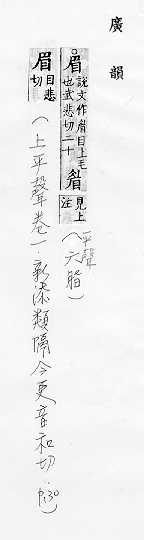 廣韻
眉說文作睂目上毛也武悲切二十 睂見上注(平聲六脂)
眉目悲切(上平聲卷一.新添類隔今更音和切.P.130)